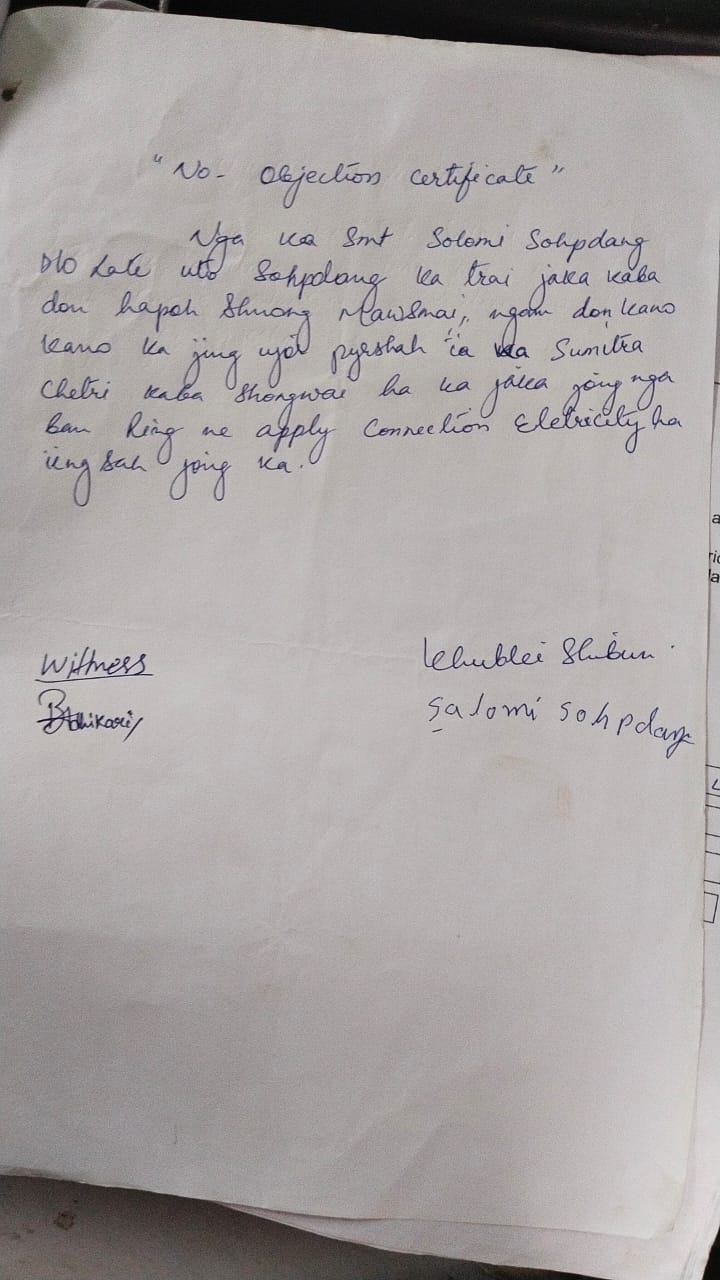 "No- Objection certificate"
Nga ka Smt Solomi Sohpdang
D/O Late uto Sohpdang ka trai jaka kaba
don hapoh Shnong Mawsmai, ngam don kano
kano ka jing ujor pyrshah ia ka Sumitra
Chetri kaba Shongwai ha ka jaka jong nga
ban Ring ne apply Connection Eletricity ha
ieng sah jong ka.
Wittness
Khublei Shibun.
Salomi Sohpdang